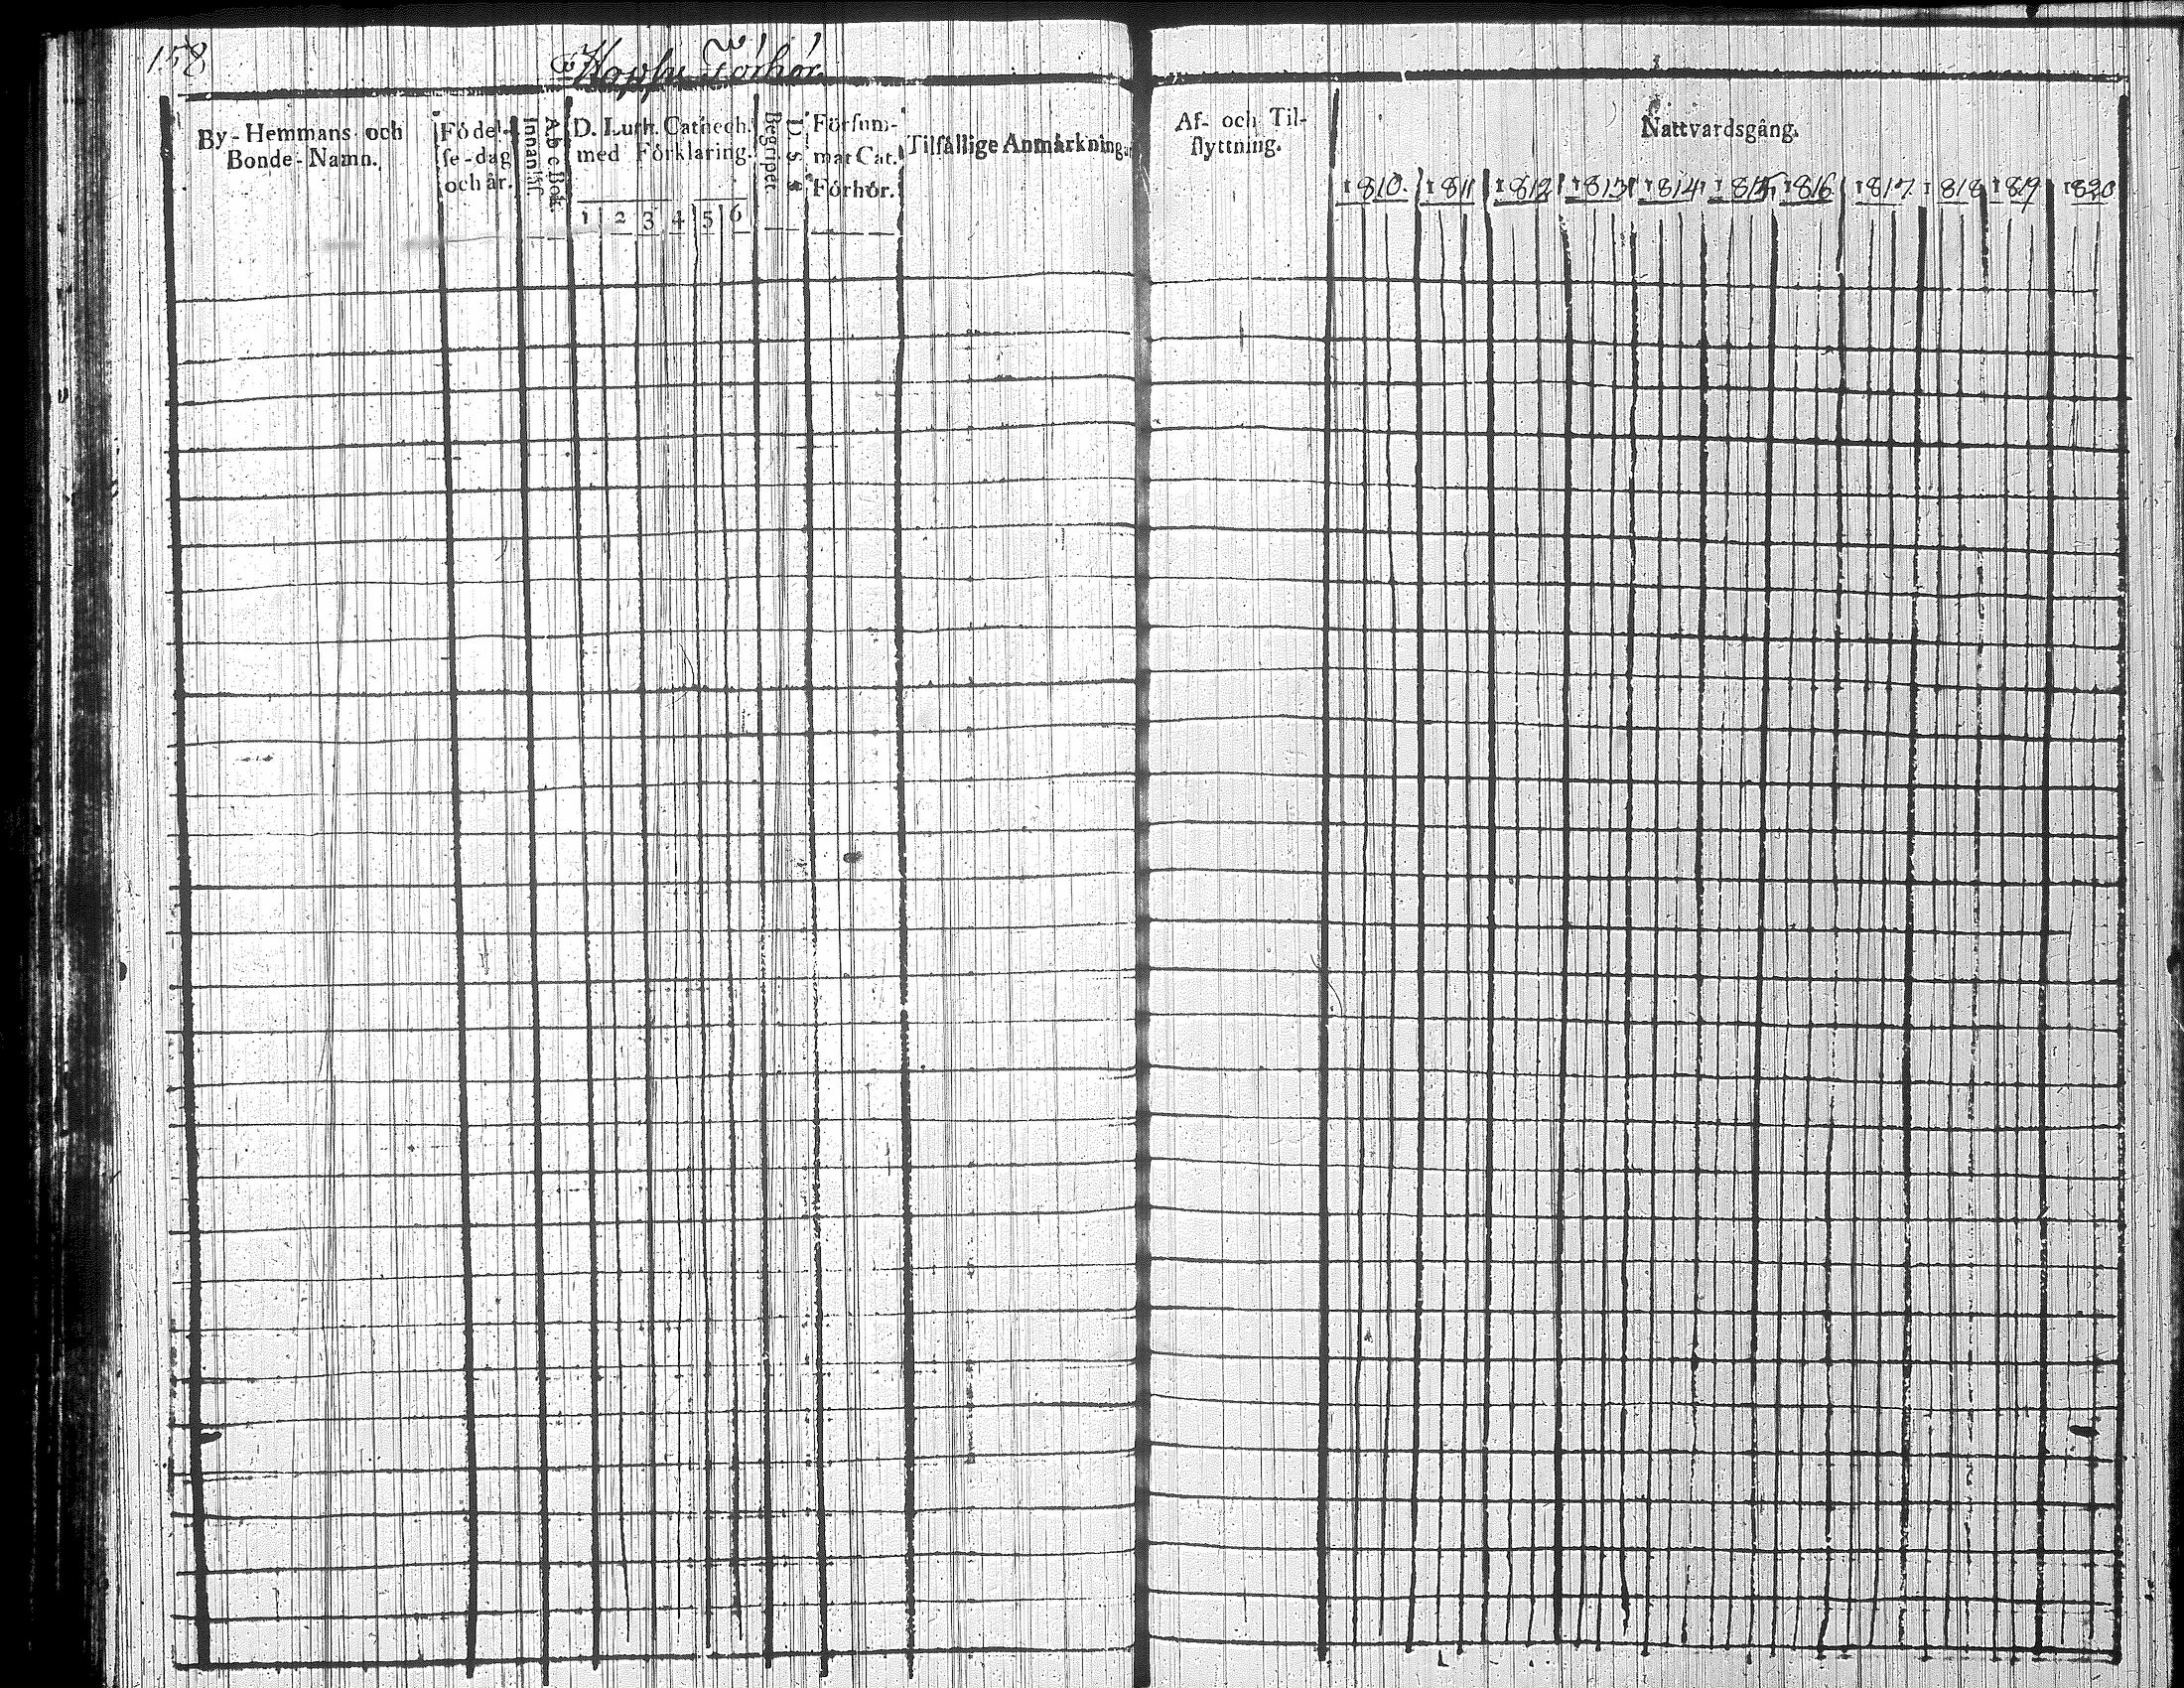 158
Förhör
By-Hemmans och
Bonde-Namn.
Födel-
se-dag
och år.
Innanläs
A b c Bok.
D. Luth. Cathech.
med Förklaring.
1 2 3 4 5 6
Begriper
Försum-
mat Cat.
Förhör.
Tilfällige Anmärkning.
Af- och Til-
flyttning.
Nattvardsgång.
1810. 1811 1812 1813 1814 1815 1816 1817 1818 1819 1820